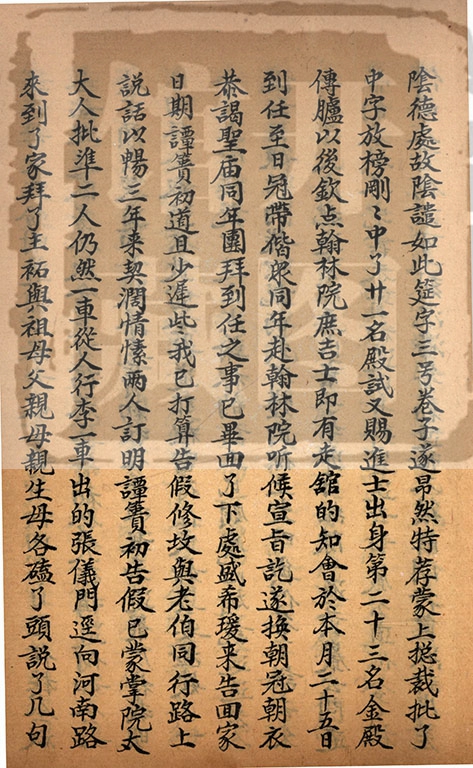 陰德處故陰譴如此筳字三号卷子遂昂然特荐蒙上捴裁批了
中字放榜剛〻中了廿一名殿試又賜進士出身第二十三名金殿
傳臚以後欽点翰林院庶吉士即有走舘的知會於本月二十五日
到任至日冠帶偕眾同年赴翰林院听候宣旨訖遂換朝冠朝衣
恭謁聖庙同年團拜到任之事已畢回了下處盛希瑗来告回家
日期譚簣初道且少遲些我已打算告假修坟與老伯同行路上
説話以暢三年来契濶情愫两人訂明譚簣初告假已蒙掌院大
大人批準二人仍然一車從人行李一車出的張儀門逕向河南路
來到了家拜了主祏與祖母父親母親生母各磕了頭説了几句